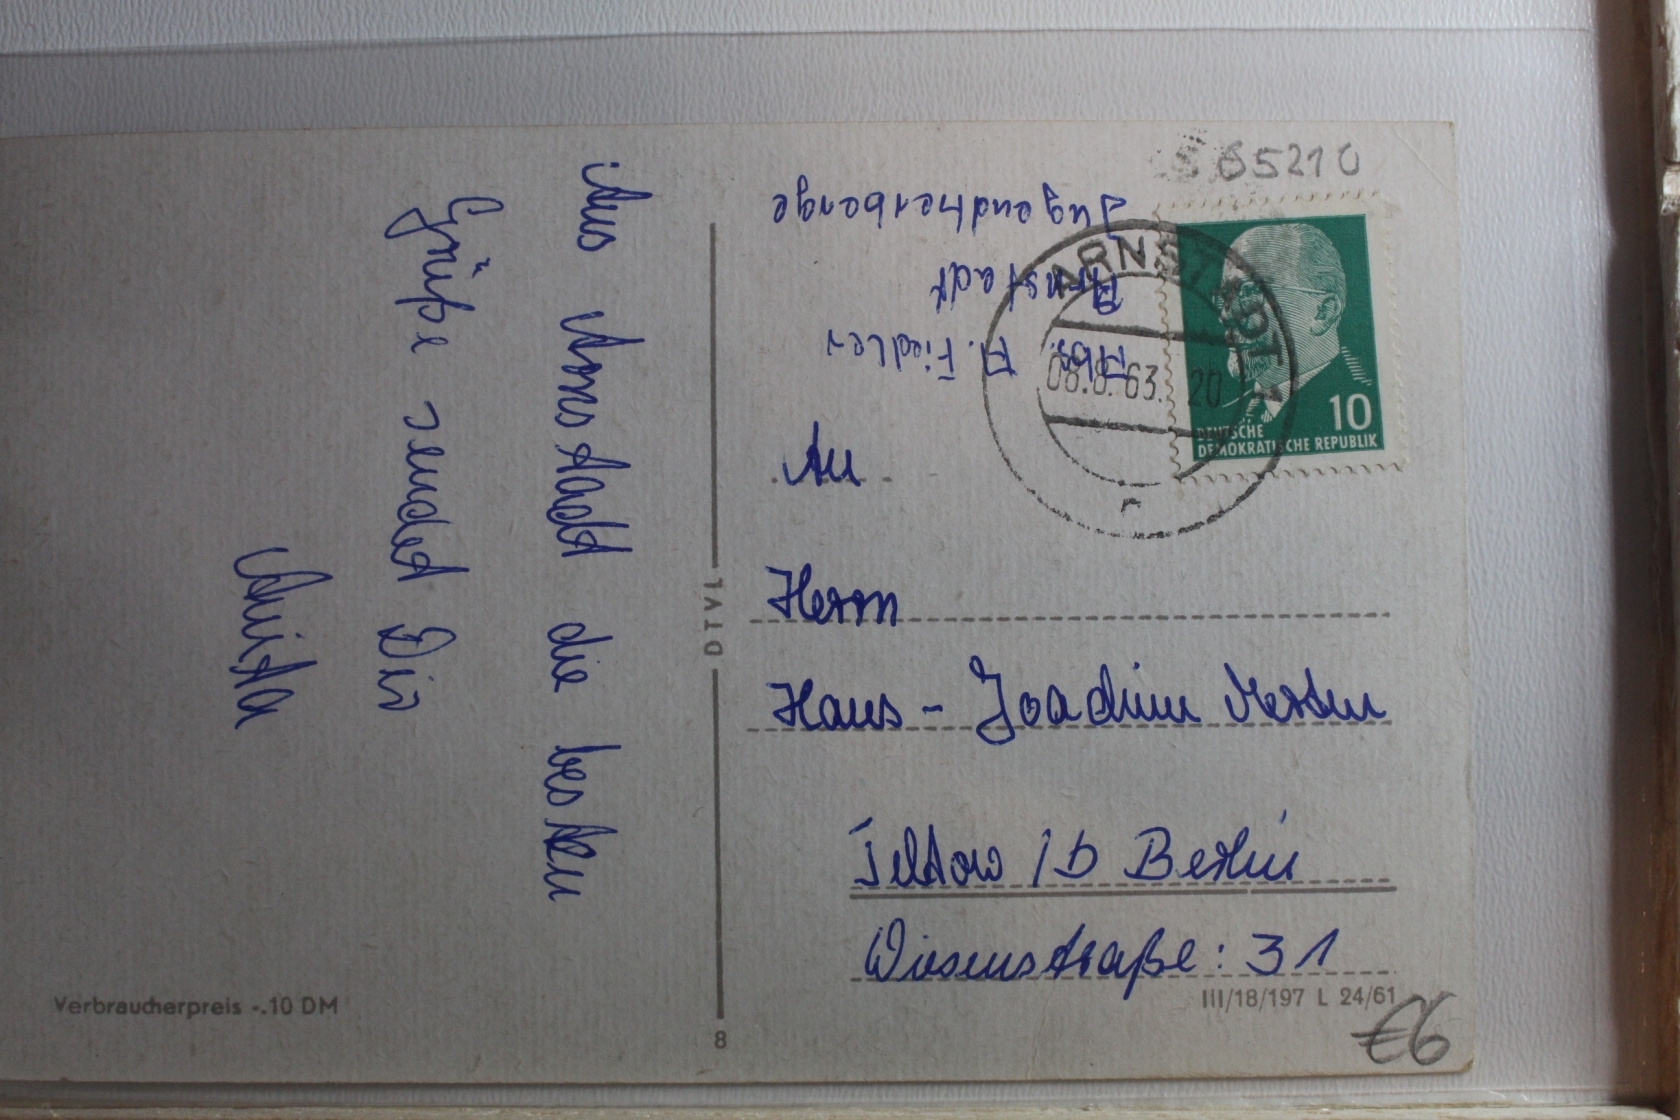 Aus Arnstadt die besten
Grüße sendet Dir
Anita
Verbraucherpreis -.10 DM
DTVL
8
65210
Jugendherberge
Arnstadt
Abs. A. Fiedler
ARNSTADT 1
08.8.63. 20
n
10
DEUTSCHE
DEMOKRATISCHE REPUBLIK
An
Herrn
Hans - Joachim Merten
Teltow / b Berlin
Wiesenstraße: 31
III/18/197 L 24/61
€6